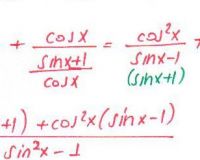 + cosx / ((sinx+1)/cosx) = cos²x / sinx-1 +
(sinx+1)
+1) + cos²x(sinx-1)
sin²x-1